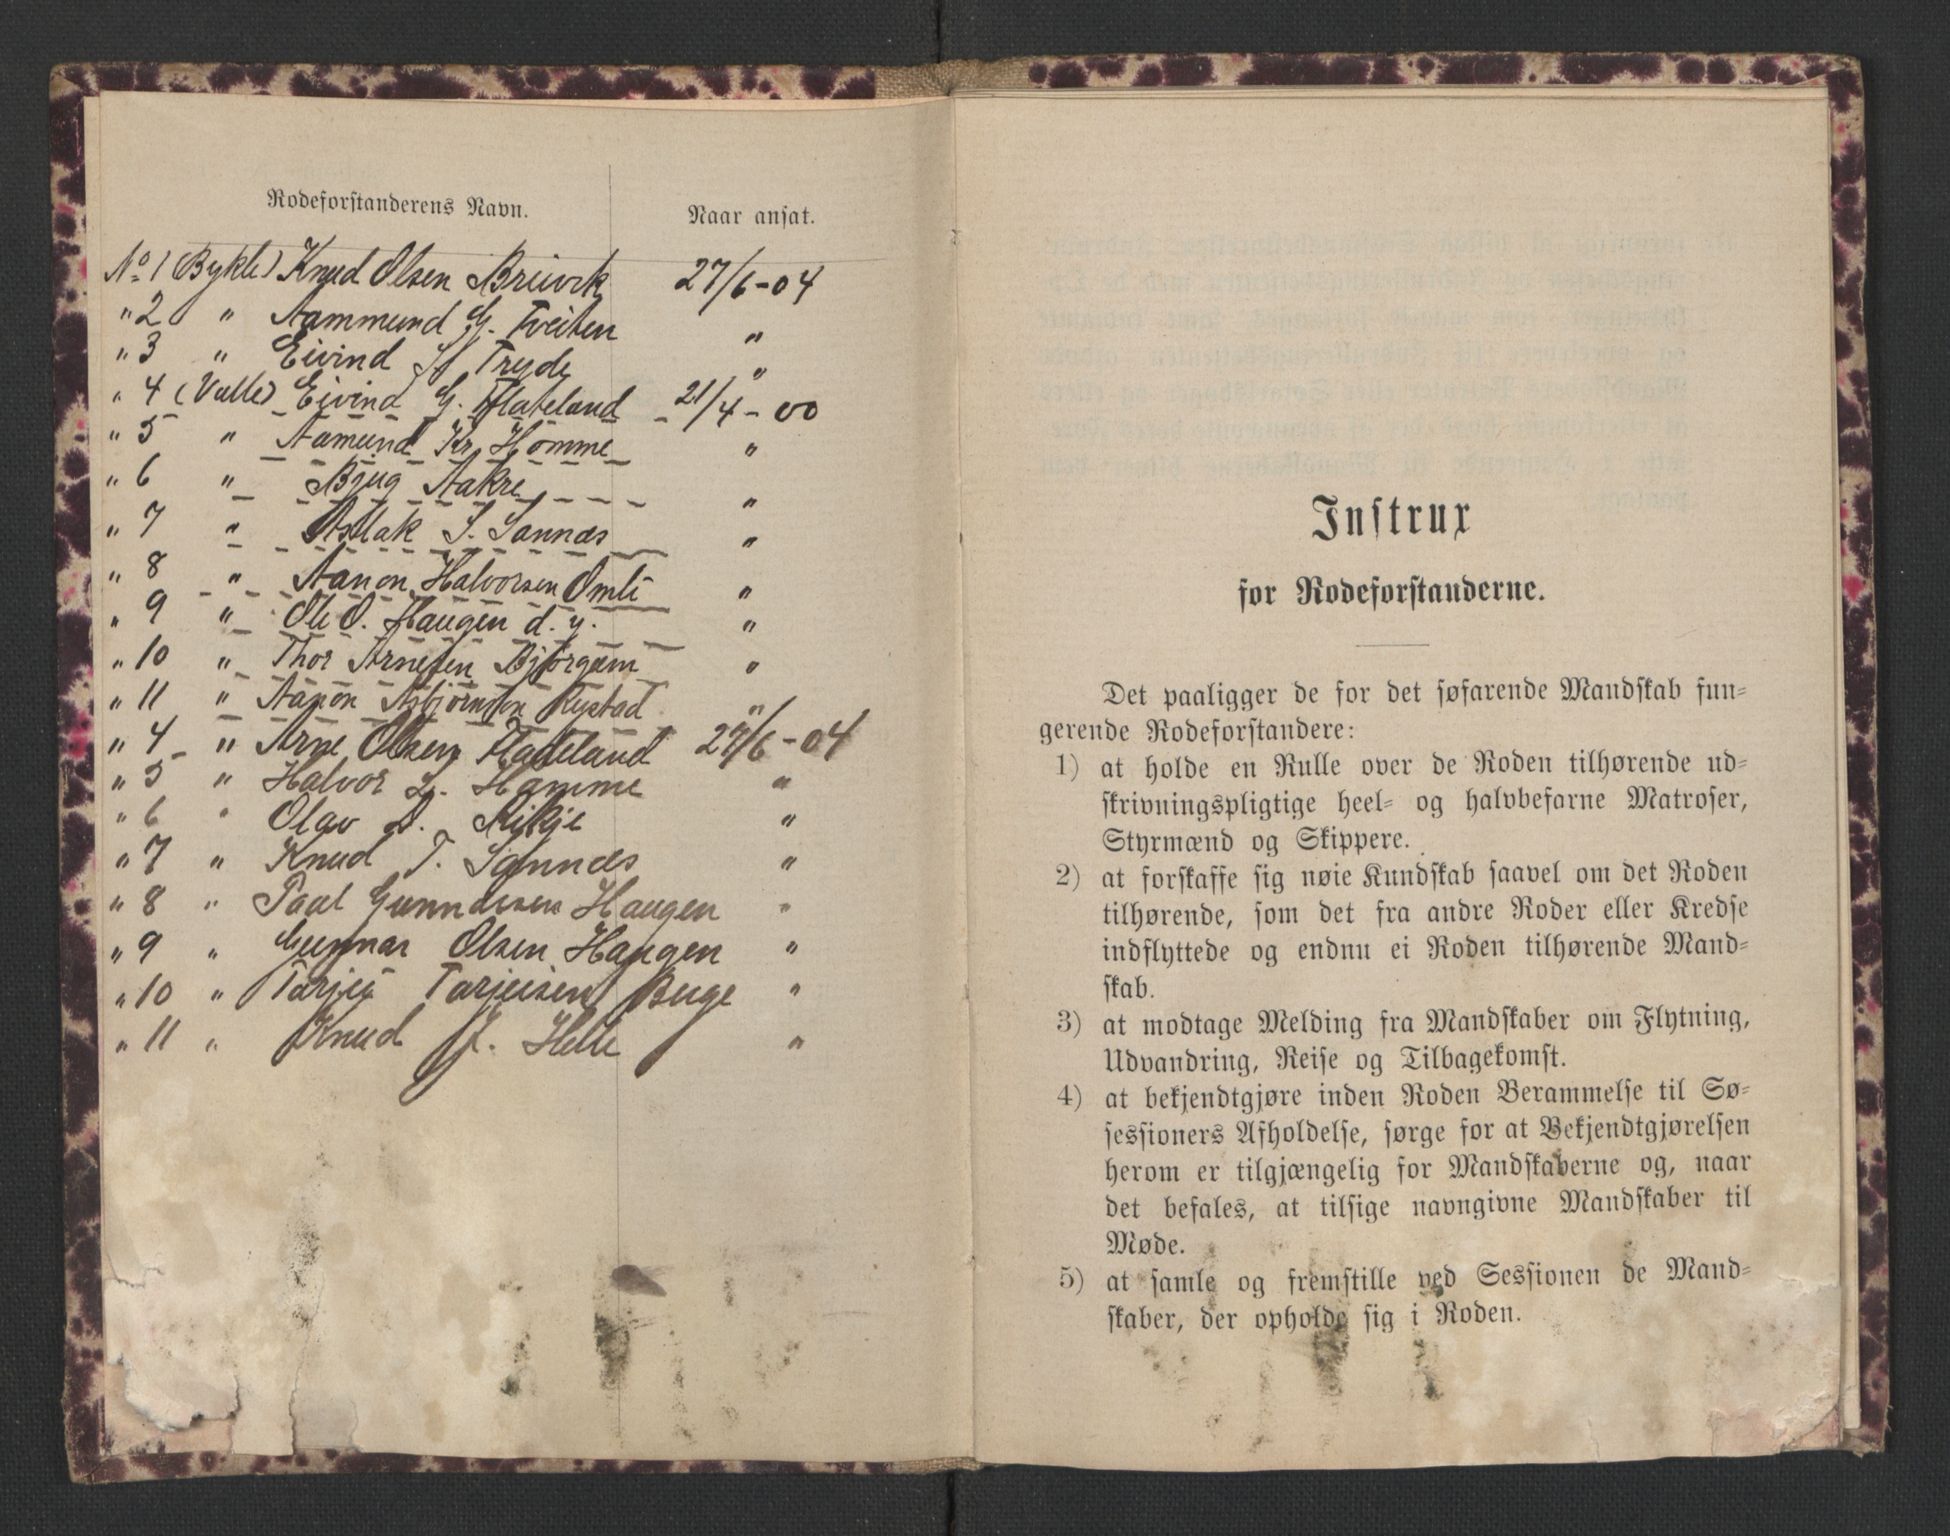 Rodeforstanderens Navn.
Naar ansat.
No 1 (Bykle) Knud Olsen Breivik 27/6-04
" 2 " Aammund G. Tveiten "
" 3 " Eivind Tryde "
" 4 (Valle) Eivind G. Flateland - 21/4-00
" 5 " Aamund Kr. Homme "
" 6 " Bjug Aakre "
" 7 " Aslak S. Sannæs "
" 8 " Aanon Halvorsen Omli "
" 9 " Ole O. Haugen d. y. "
" 10 " Thor Arnesen Bjørgum "
" 11 " Aanon Asbjørnsen Rystad "
" 4 - " Arne Olsen Flateland 27/6-04
" 5 " Halvor L. Homme "
" 6 " Olav "
" 7 " Knud T. Sannæs "
" 8 " Paal Gunnarsen Haugen "
" 9 " Gunnar Olsen Haugen "
" 10 " Tarjei Tarjeisen Berge "
" 11 " Knud J. Helle "
Instrux
for Rodeforstanderne.
Det paaligger de for det søfarende Mandskab fun-
gerende Rodeforstandere:
1) at holde en Rulle over de Roden tilhørende ud-
skrivningspligtige heel- og halvbefarne Matroser,
Styrmænd og Skippere.
2) at forskaffe sig nøie Kundskab saavel om det Roden
tilhørende, som det fra andre Roder eller Kredse
indflyttede og endnu ei Roden tilhørende Mand-
skab.
3) at modtage Melding fra Mandskaber om Flytning,
Udvandring, Reise og Tilbagekomst.
4) at bekjendtgjøre inden Roden Berammelse til Sø-
sessioners Afholdelse, sørge for at Bekjendtgjørelsen
herom er tilgjængelig for Mandskaberne og, naar
det befales, at tilsige navngivne Mandskaber til
Møde.
5) at samle og fremstille ved Sessionen de Mand-
skaber, der opholde sig i Roden.